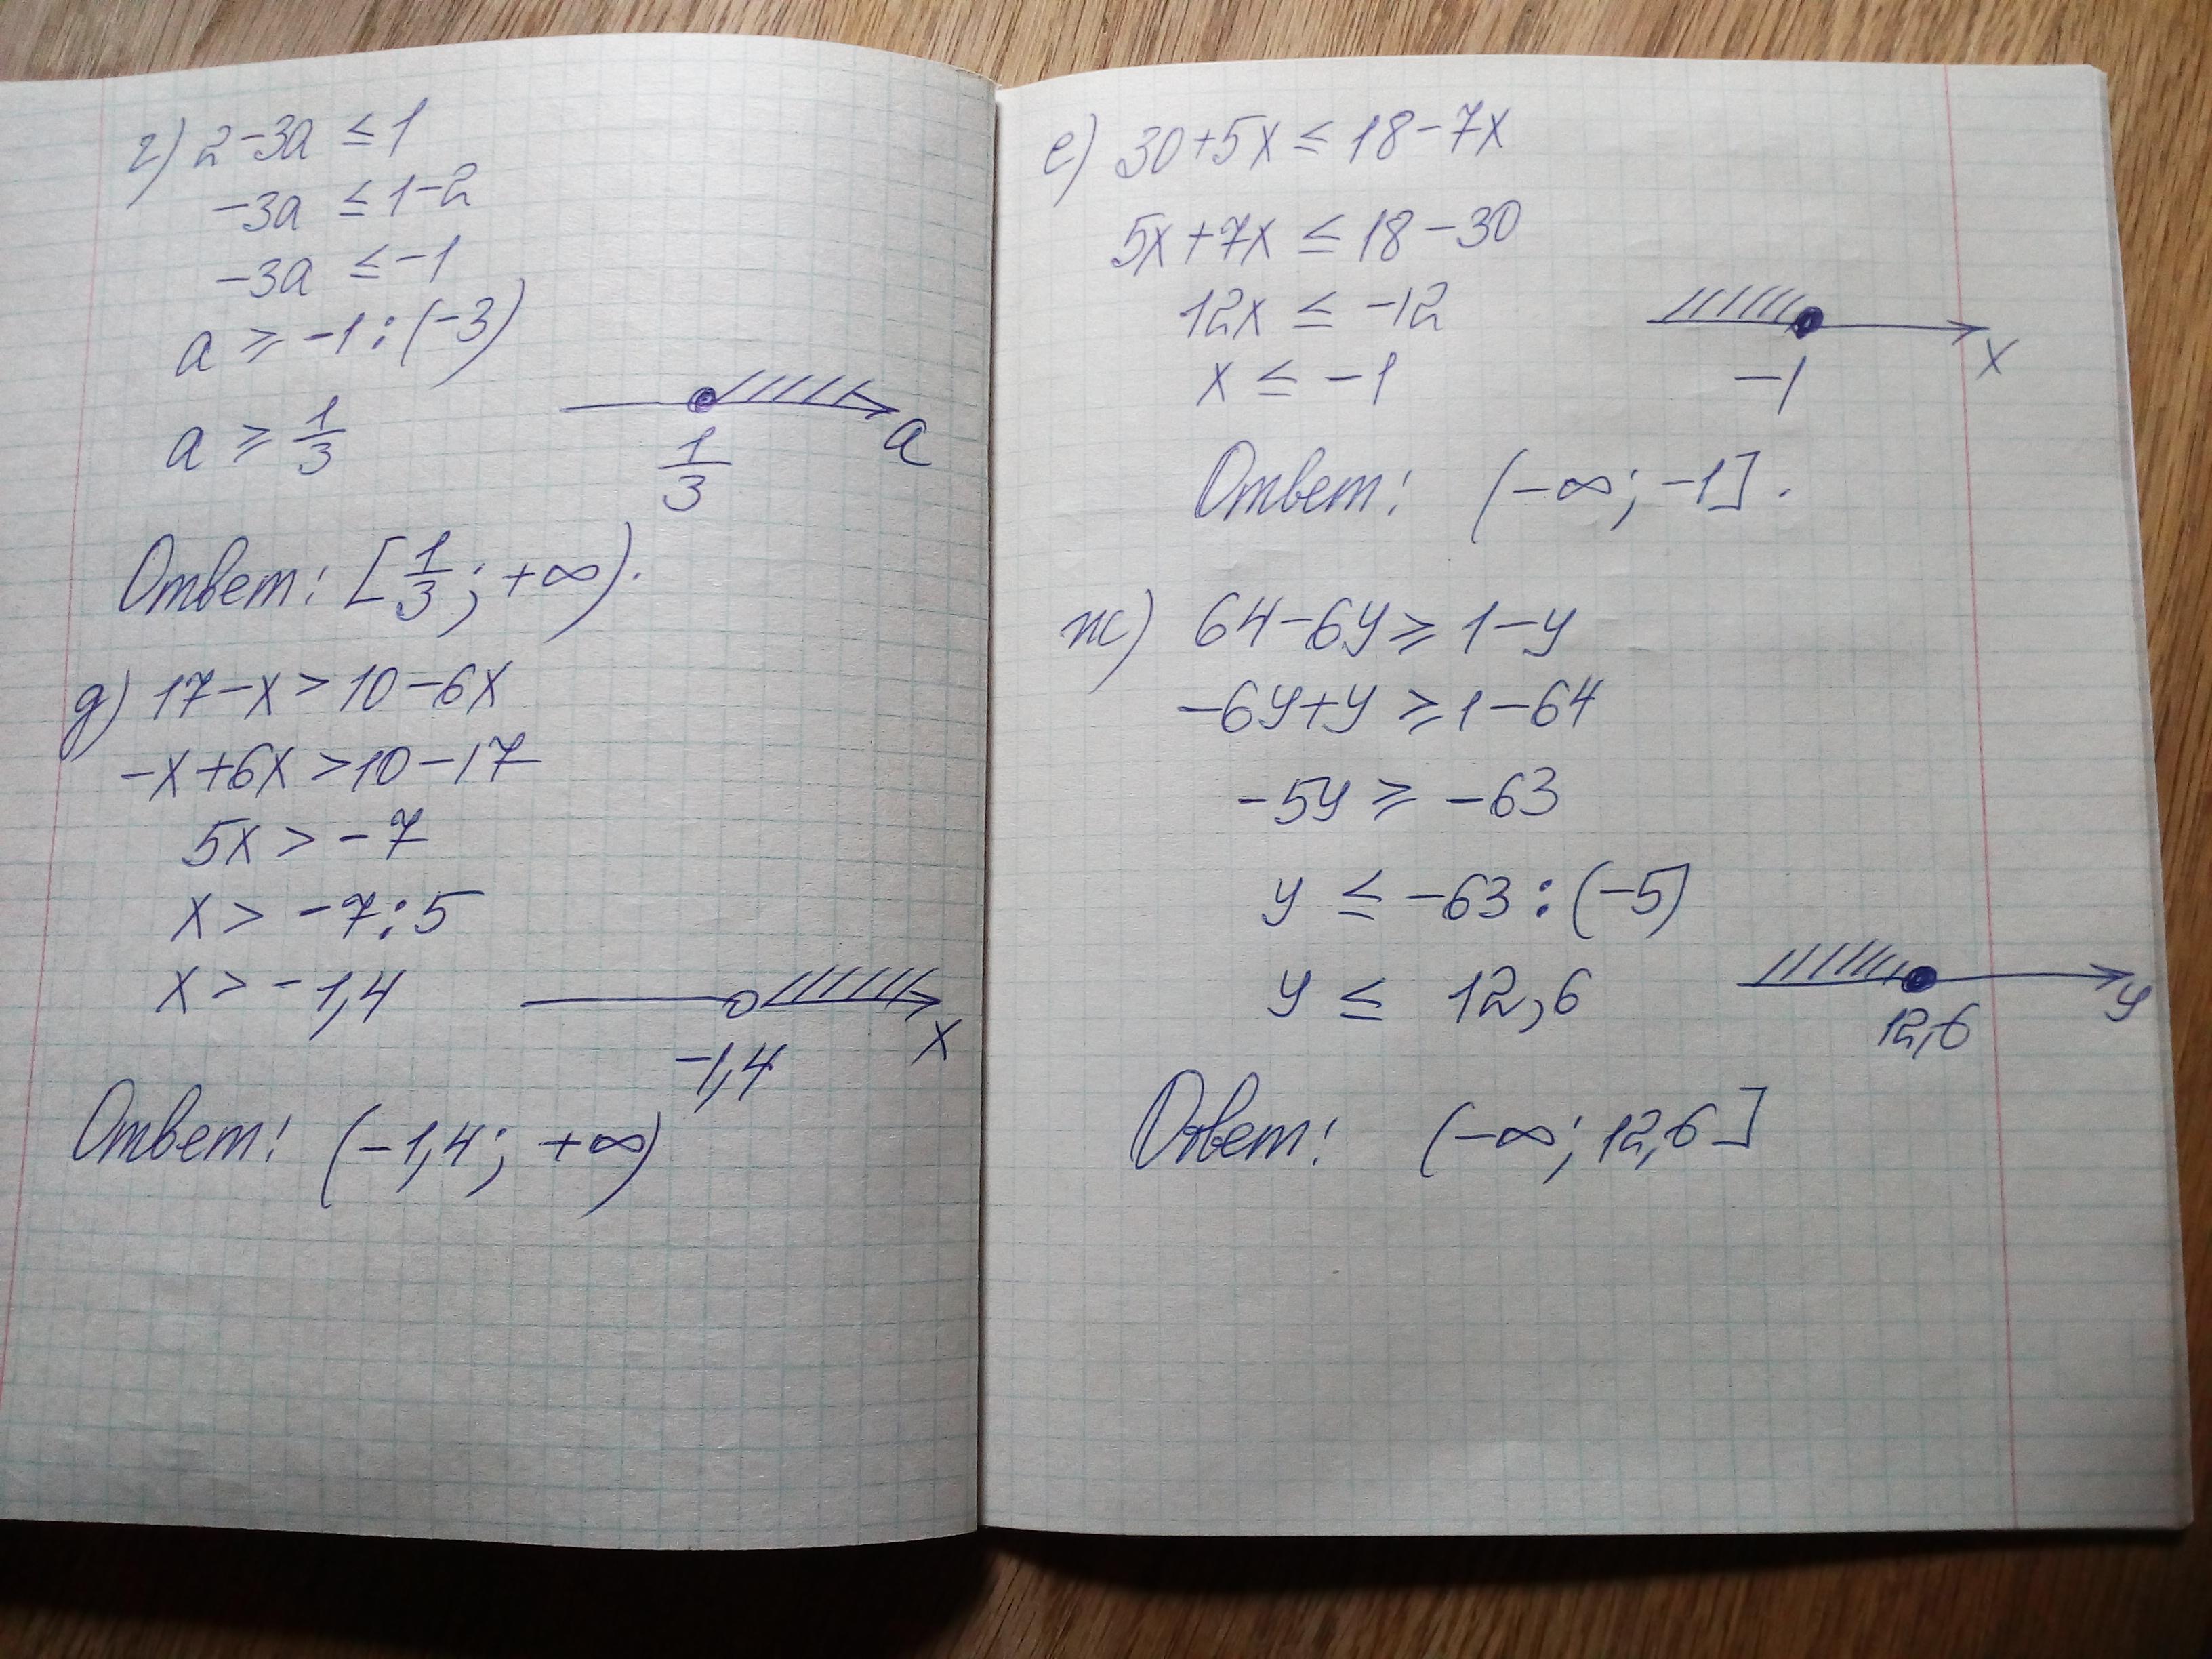 г) 2-3a ≤ 1
-3a ≤ 1-2
-3a ≤ -1
a ⩾ -1 : (-3)
a ⩾ 1/3
1/3 a
Ответ: [1/3; +∞).
д) 17-x > 10-6x
-x+6x > 10-17
5x > -7
x > -7:5
x > -1,4
-1,4 x
Ответ: (-1,4; +∞)
е) 30+5x ≤ 18-7x
5x+7x ≤ 18-30
12x ≤ -12
x ≤ -1
-1 x
Ответ: (-∞; -1].
ж) 64-6y ⩾ 1-y
-6y+y ⩾ 1-64
-5y ⩾ -63
y ≤ -63 : (-5)
y ≤ 12,6
12,6 y
Ответ: (-∞; 12,6]